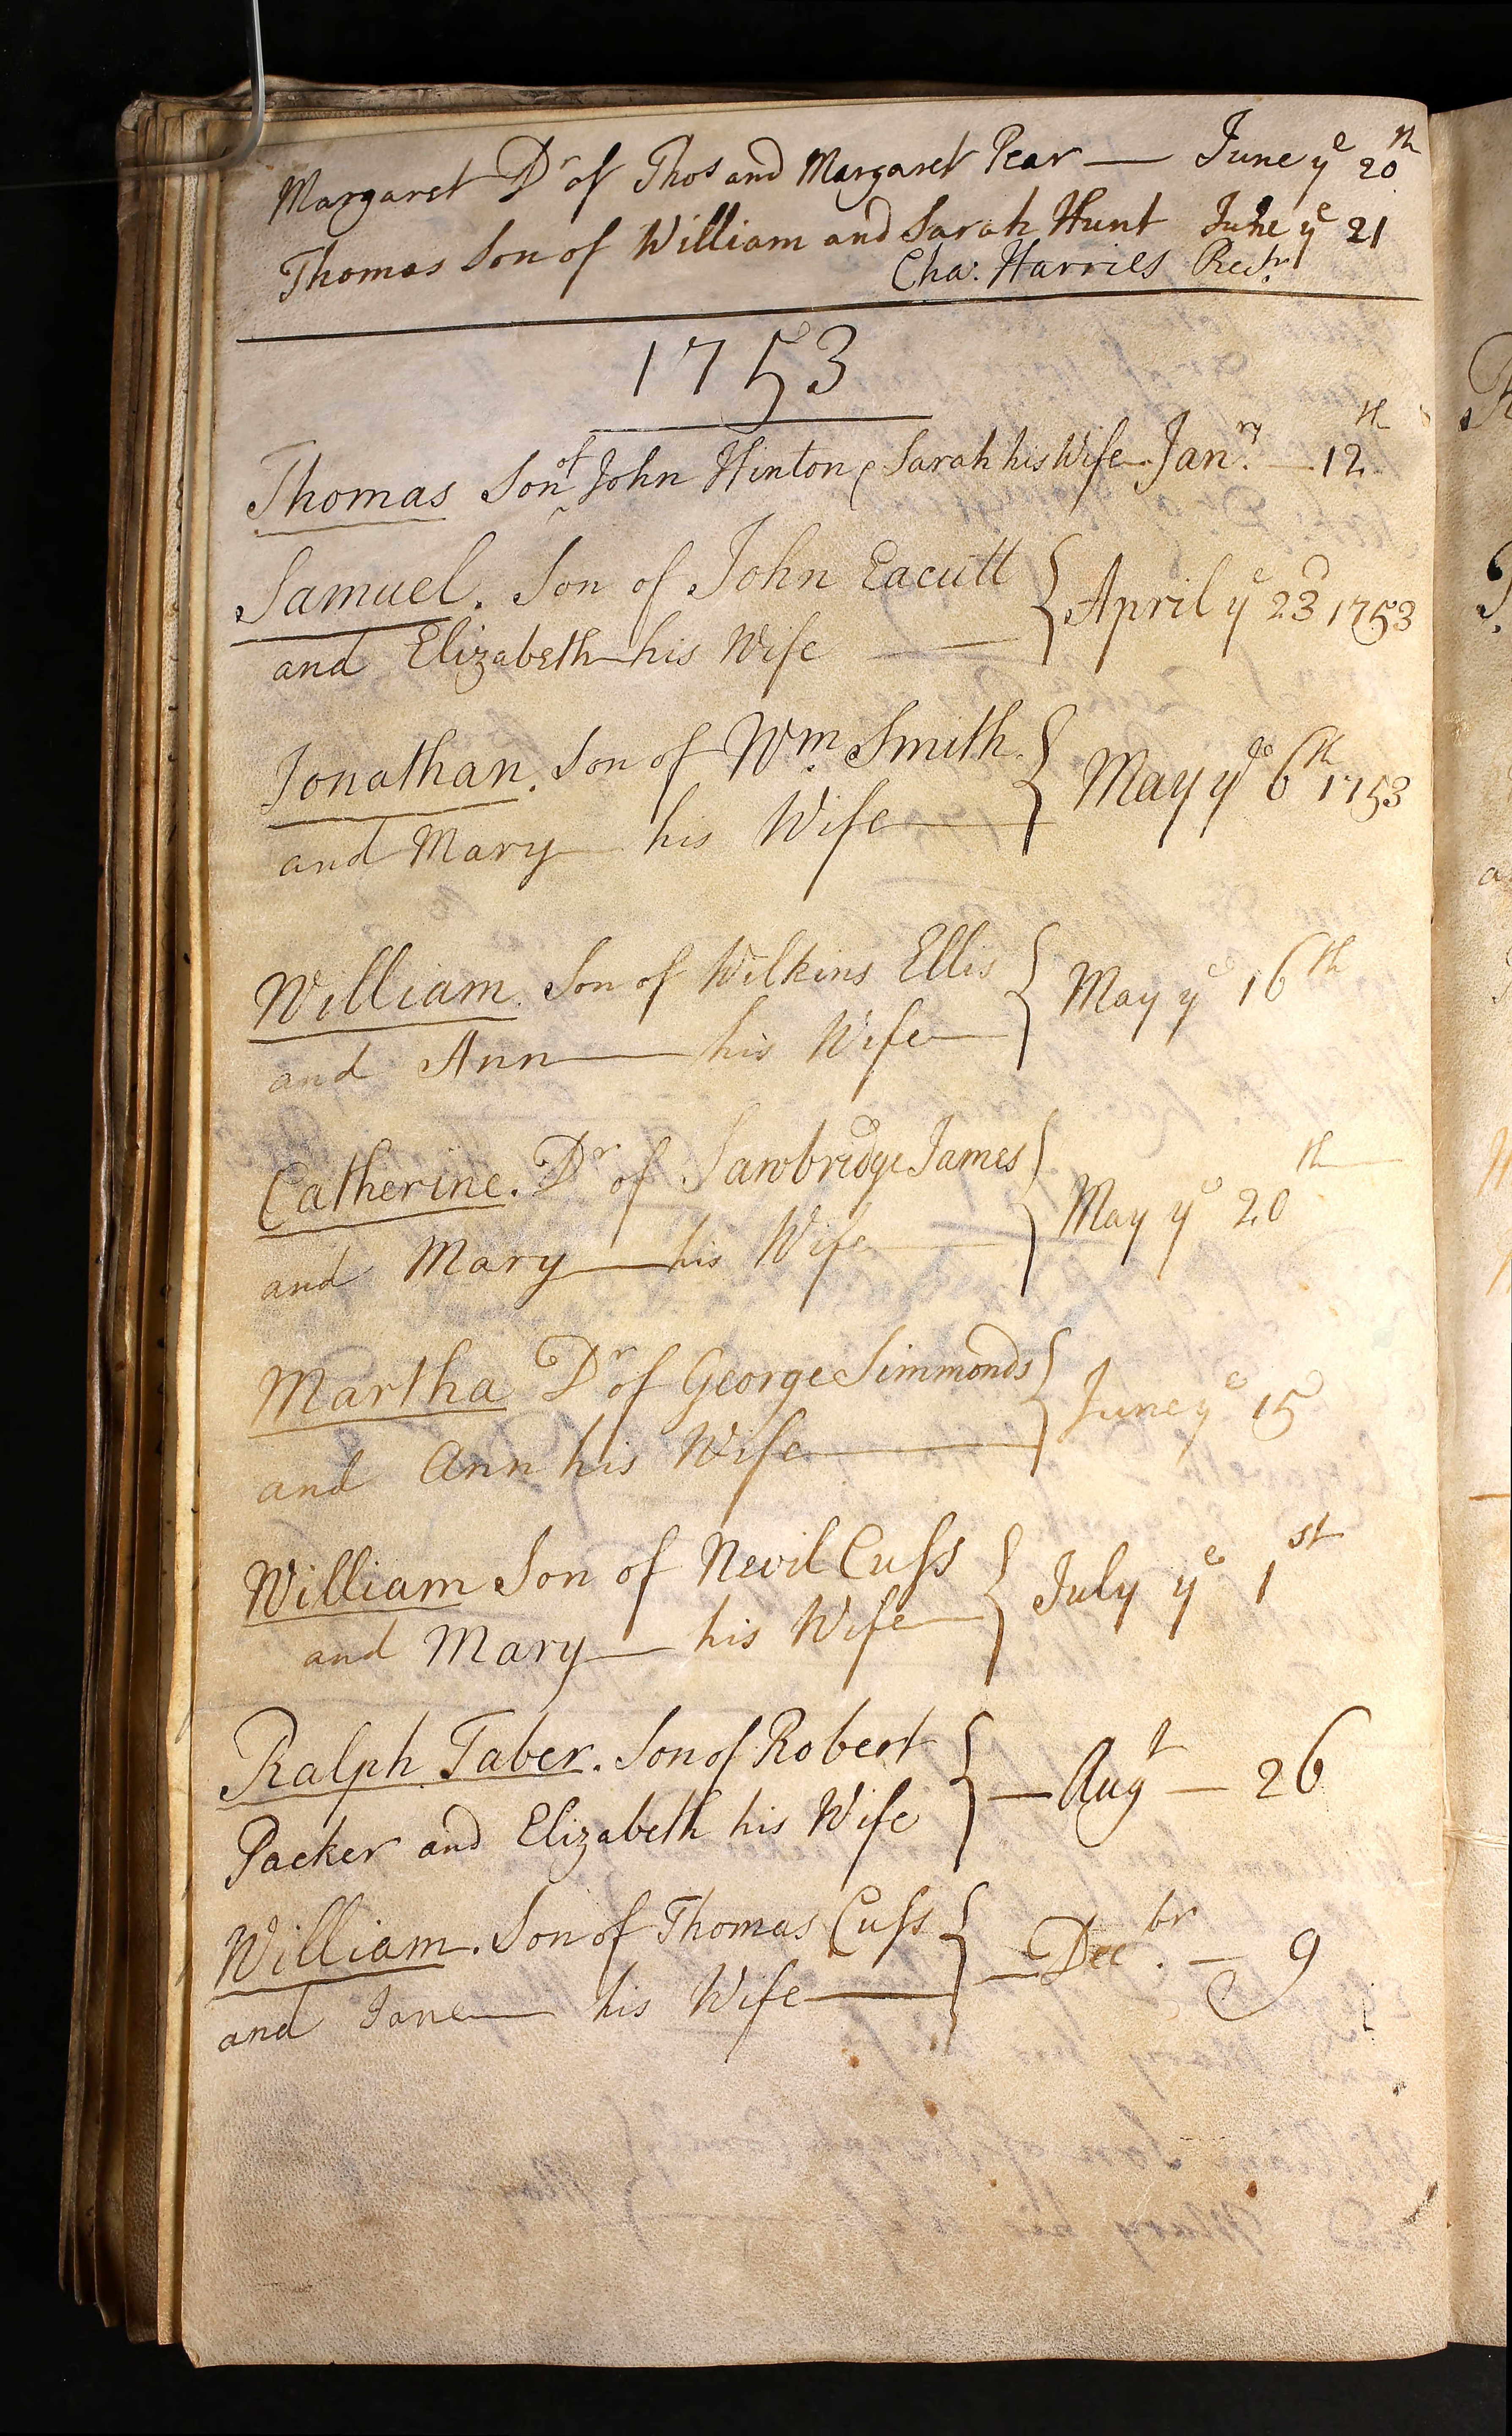 Margaret Dr of Thos and Margaret Pear — June ye 20th
Thomas Son of William and Sarah Hunt June ye 21
Cha: Harries Rectr
1753
Thomas Son of John Hinton & Sarah his Wife Janry. — 12th
Samuel. Son of John Eacutt
and Elizabeth his Wife — } April ye 23d 1753
Jonathan. Son of Wm. Smith
and Mary his Wife — } May ye 6th 1753
William. Son of Wilkins Ellis
and Ann — his Wife — } May ye 16th
Catherine. Dr of Sawbridge James
and Mary — his Wife — } May ye 20th
Martha Dr of George Simmonds
and Ann his Wife — } June ye 15
William Son of Nevil Cuſs
and Mary — his Wife — } July ye 1st
Ralph Taber. Son of Robert
Packer and Elizabeth his Wife } — Augt — 26
William. Son of Thomas Cuſs
and Jane — his Wife — } — Decbr. — 9